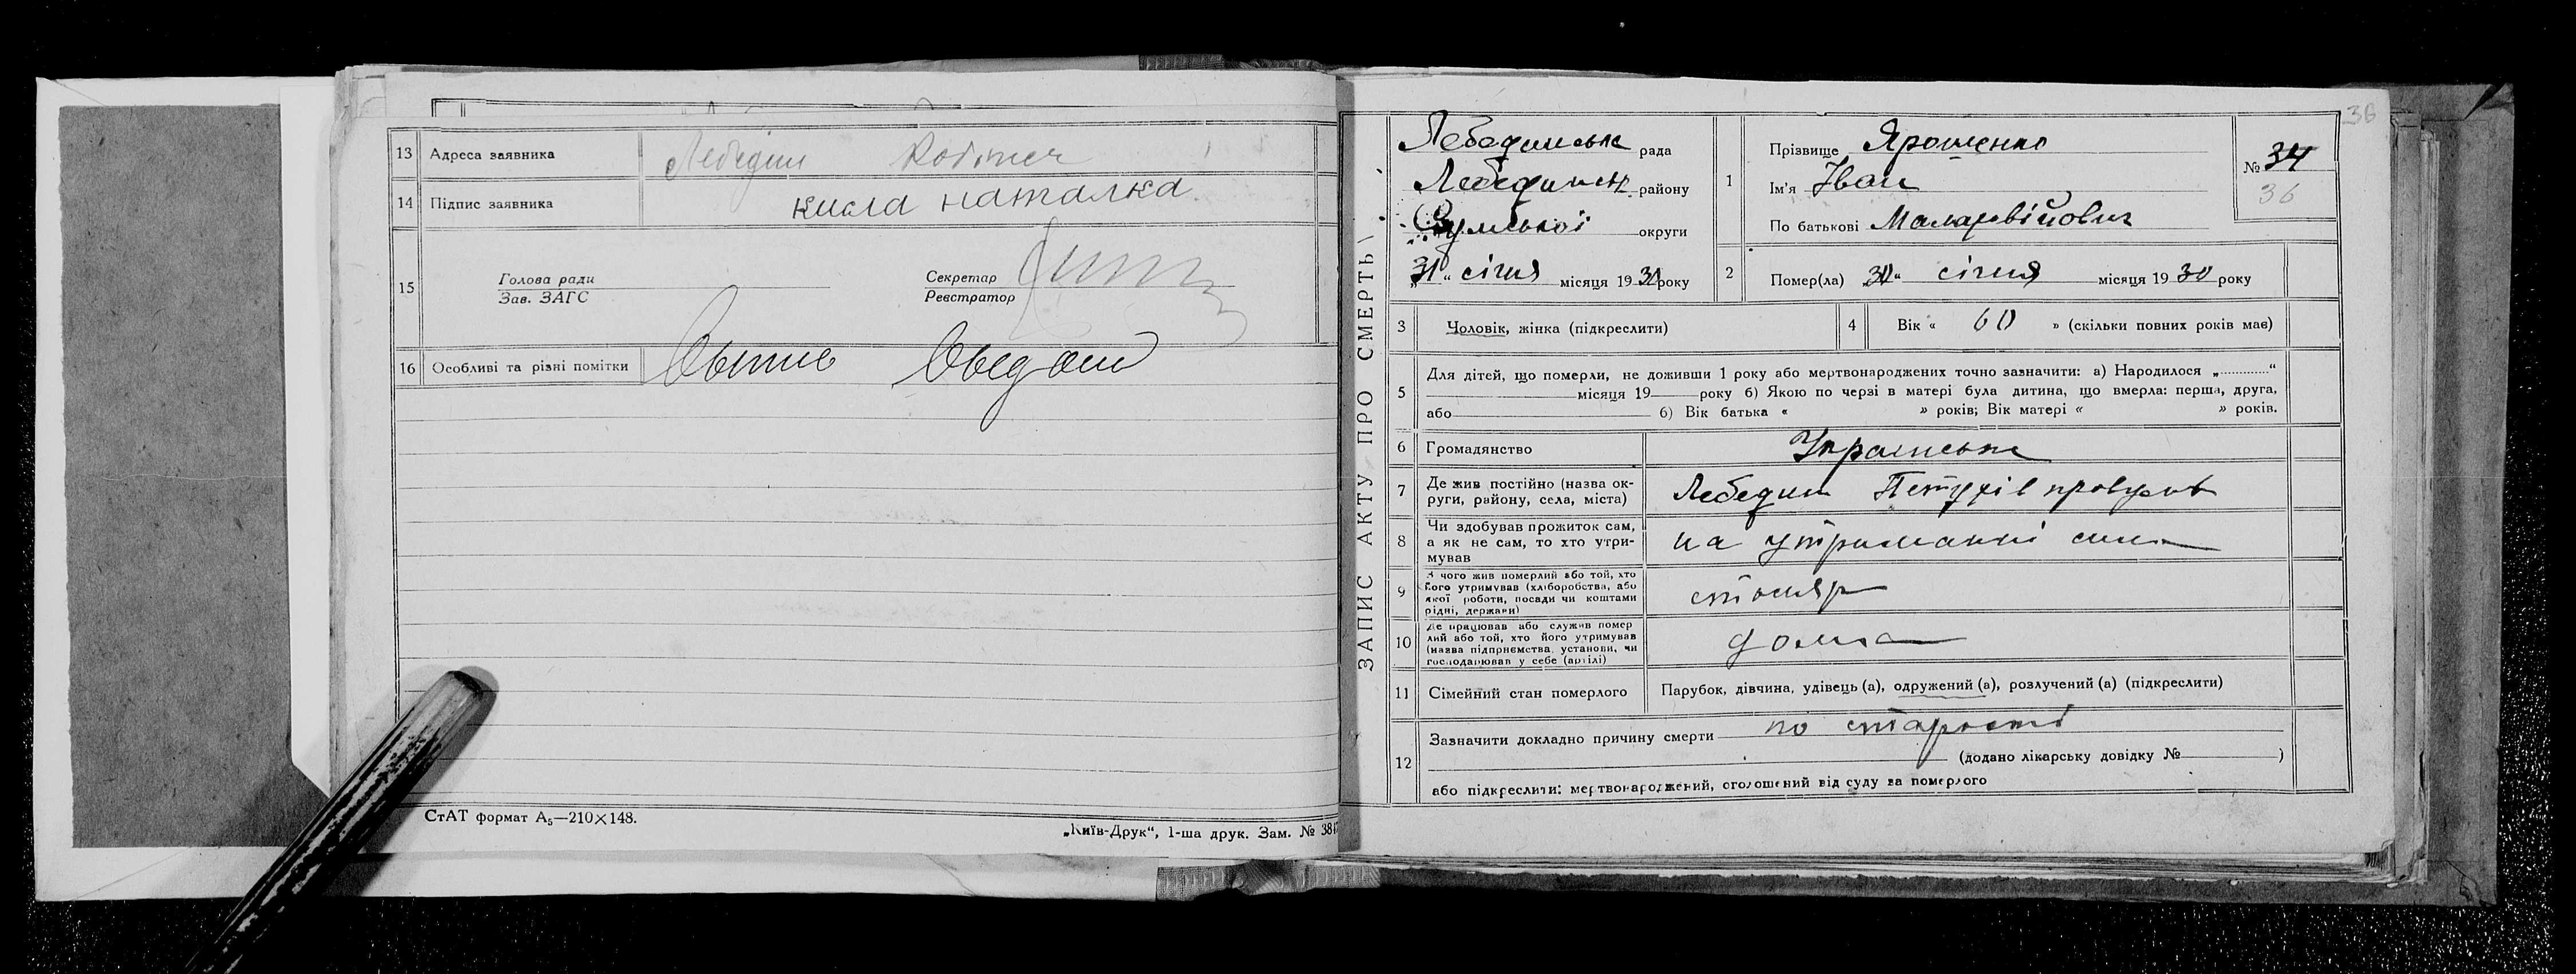 13 Адреса заявника Лебедин
14 Підпис заявника кисла наталка
15 Голова ради
Зав. ЗАГС
Секретар
Реєстратор
16 Особливі та різні помітки
СтАТ формат А₅—210×148.
„Київ-Друк“, 1-ша друк. Зам. № 38
36
ЗАПИС АКТУ ПРО СМЕРТЬ
Лебединська рада
Лебединськ району
Сумської округи
„31“ січня місяця 19 року
1 Прізвище Ярошенко
Ім'я Іван
По батькові
№ 34
36
2 Помер(ла) „30“ січня місяця 19 30 року
3 Чоловік, жінка (підкреслити)
4 Вік « 60 » (скільки повних років має)
5 Для дітей, що померли, не доживши 1 року або мертвонароджених точно зазначити: а) Народилося „.............“
місяця 19 року б) Якою по черзі в матері була дитина, що вмерла: перша, друга,
або 6) Вік батька « » років; Вік матері « » років.
6 Громадянство Українське
7 Де жив постійно (назва ок-
руги, району, села, міста) Лебедин Петухів провулок
8 Чи здобував прожиток сам,
а як не сам, то хто утри-
мував на утриманні сина
9 З чого жив померлий або той, хто
його утримував (хліборобства, або
якої роботи, посади чи коштами
рідні, держави) столяр
10 Де працював або служив помер
лий або той, хто його утримував
(назва підприємства, установи, чи
господарював у себе (артілі) дома
11 Сімейний стан померлого Парубок, дівчина, удівець (а), одружений (а), розлучений (а) (підкреслити)
12 Зазначити докладно причину смерти по старості
(додано лікарську довідку № )
або підкреслити: мертвонароджений, оголошений від суду за померлого